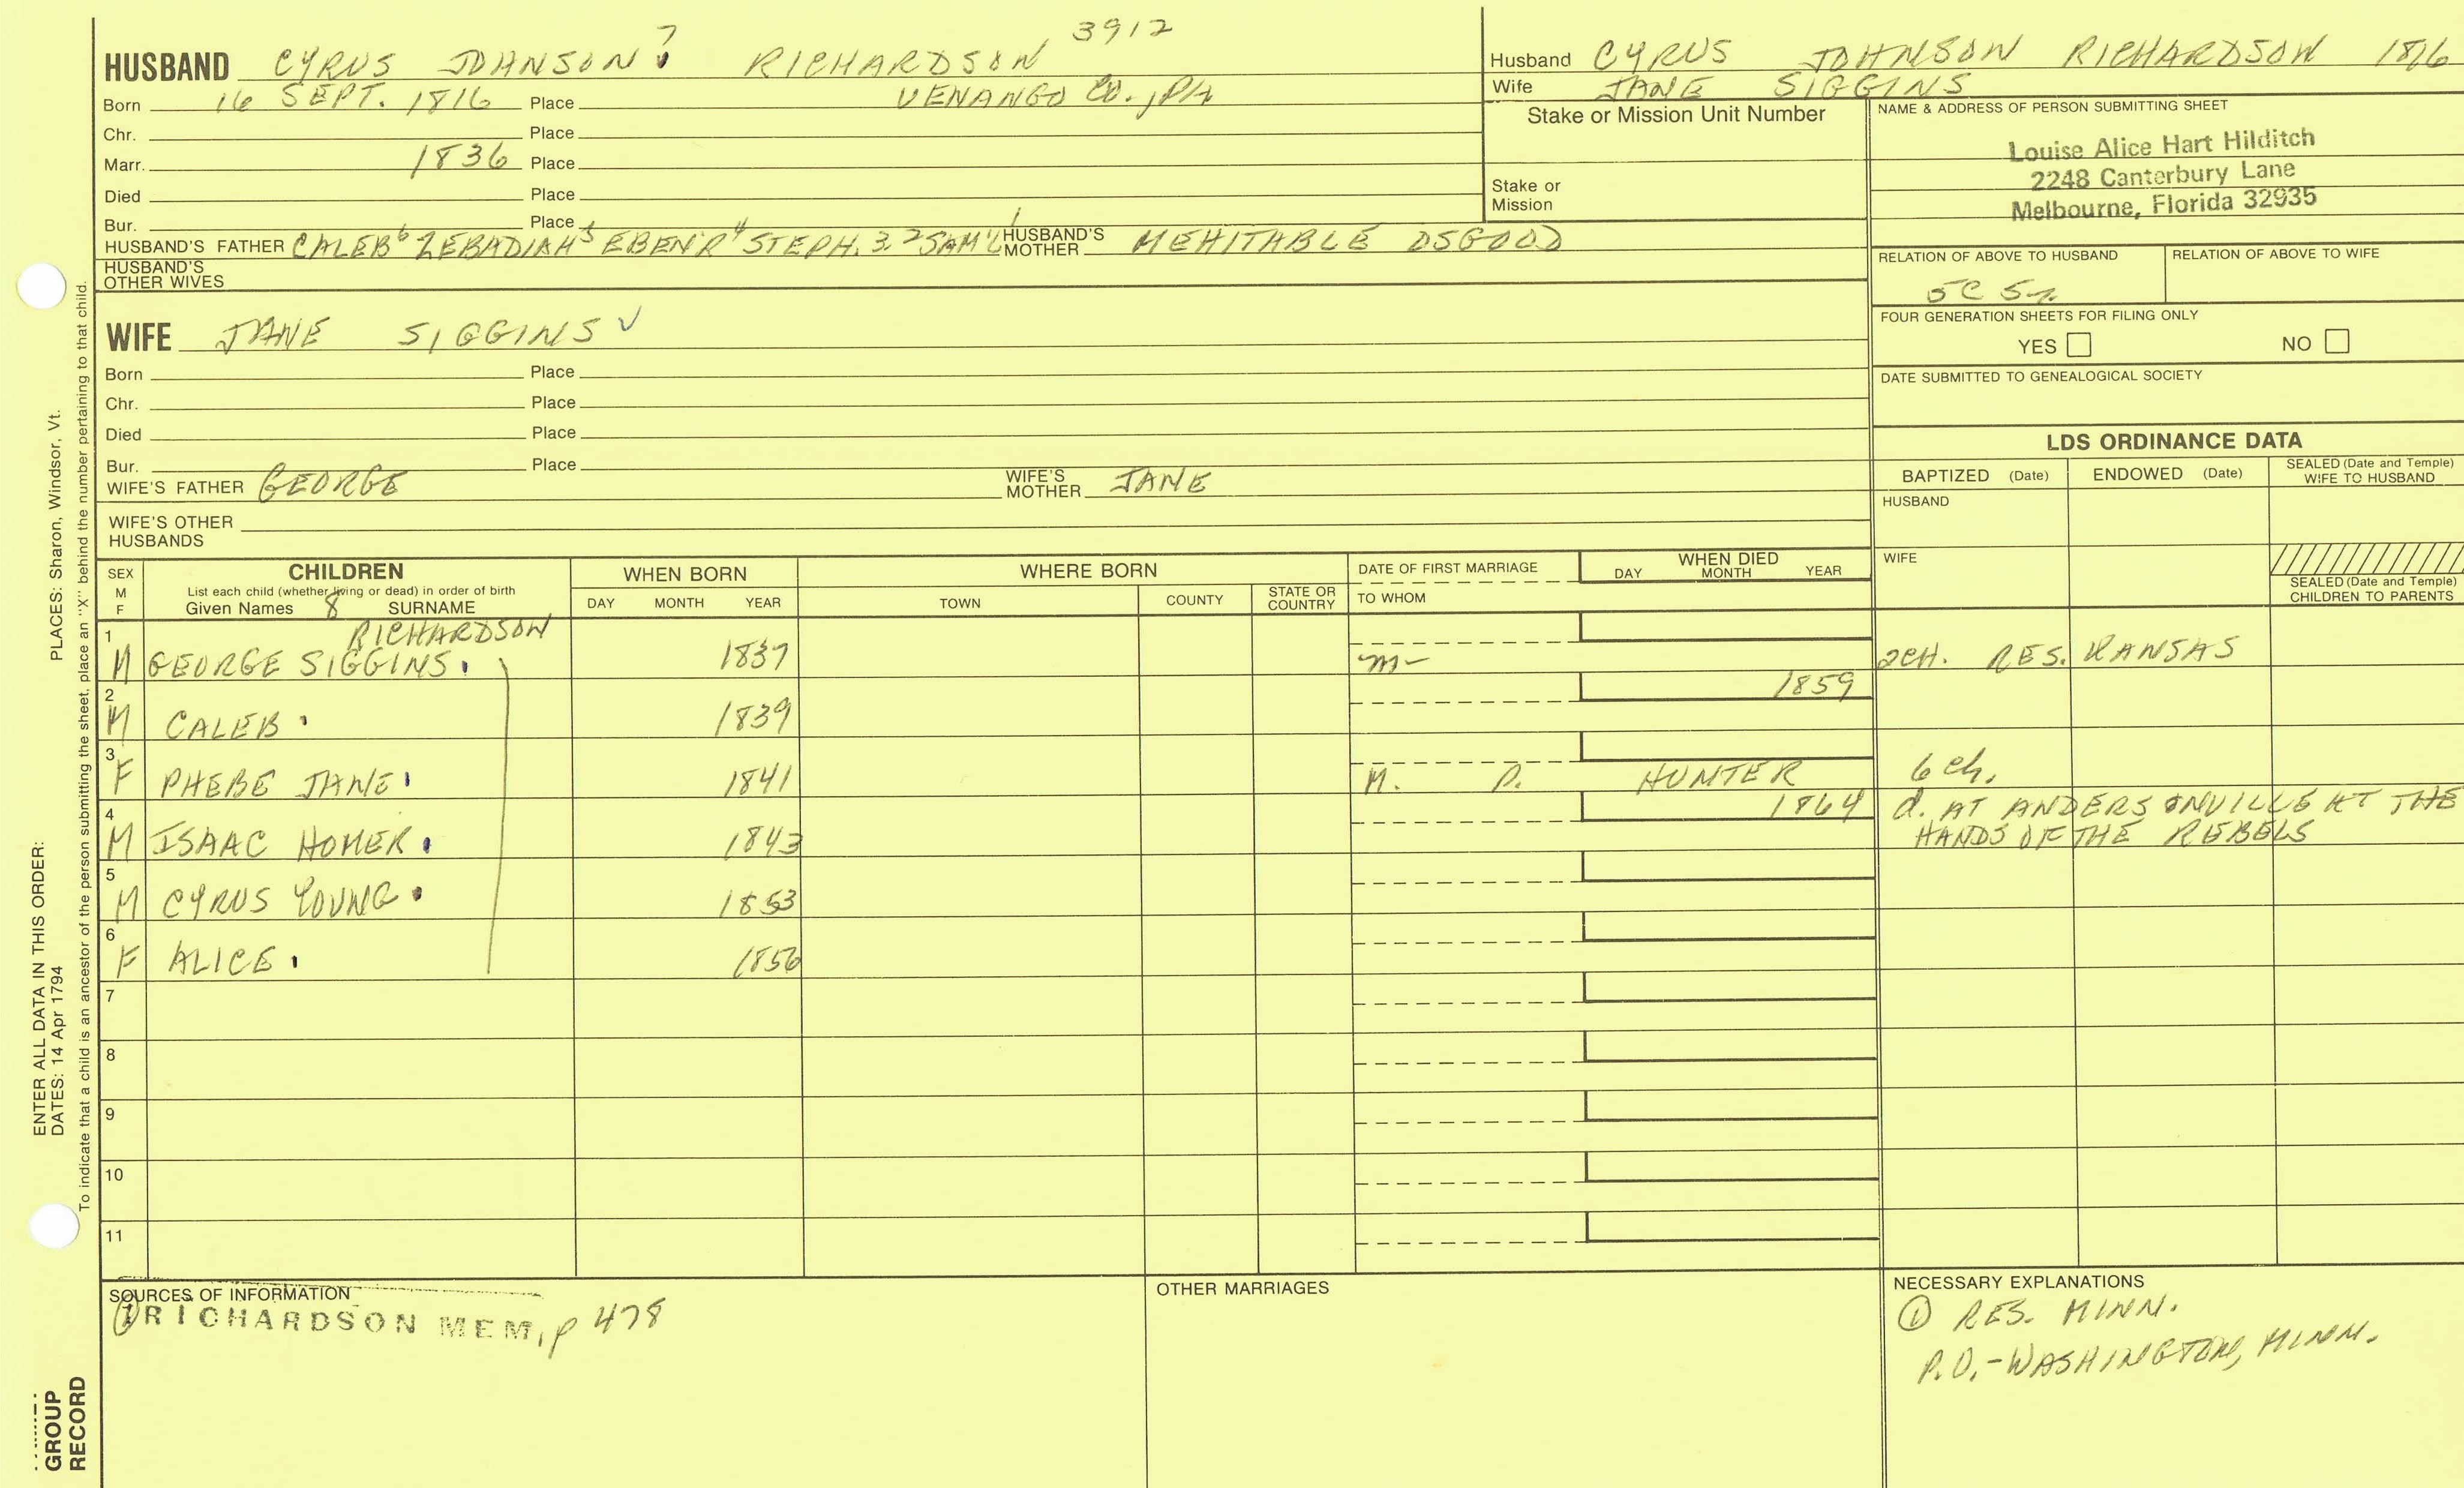 HUSBAND CYRUS JOHNSON 7 RICHARDSON 3912
Born 16 SEPT. 1816 Place VENANGO CO., PA
Chr. Place
Marr. 1836 Place
Died Place
Bur. Place
HUSBAND'S FATHER CALEB 6 ZEBADIAH 5 EBEN'R 4 STEPH. 3. 2 SAM'L 1 HUSBAND'S MOTHER MEHITABLE OSGOOD
HUSBAND'S OTHER WIVES
WIFE JANE SIGGINS
Born Place
Chr. Place
Died Place
Bur. Place
WIFE'S FATHER GEORGE WIFE'S MOTHER JANE
WIFE'S OTHER HUSBANDS
Husband CYRUS JOHNSON RICHARDSON 1816
Wife JANE SIGGINS
Stake or Mission Unit Number
Stake or Mission
NAME & ADDRESS OF PERSON SUBMITTING SHEET
Louise Alice Hart Hilditch
2248 Canterbury Lane
Melbourne, Florida 32935
RELATION OF ABOVE TO HUSBAND RELATION OF ABOVE TO WIFE
5C 5r
FOUR GENERATION SHEETS FOR FILING ONLY
YES NO
DATE SUBMITTED TO GENEALOGICAL SOCIETY
LDS ORDINANCE DATA
BAPTIZED (Date) ENDOWED (Date) SEALED (Date and Temple) WIFE TO HUSBAND
HUSBAND
WIFE
SEALED (Date and Temple) CHILDREN TO PARENTS
SEX M F
CHILDREN
List each child (whether living or dead) in order of birth
Given Names 8 SURNAME
WHEN BORN
DAY MONTH YEAR
WHERE BORN
TOWN COUNTY STATE OR COUNTRY
DATE OF FIRST MARRIAGE
TO WHOM
WHEN DIED
DAY MONTH YEAR
1 RICHARDSON
M GEORGE SIGGINS. 1837 m- 2CH. RES. KANSAS
2 1859
M CALEB. 1839
3
F PHEBE JANE. 1841 M. P. HUNTER 6 ch.
4 1864 d. AT ANDERSONVILLE AT THE
M ISAAC HOMER. 1843 HANDS OF THE REBELS
5
M CYRUS YOUNG. 1853
6
F ALICE. 1856
7
8
9
10
11
SOURCES OF INFORMATION
① RICHARDSON MEM, p 478
OTHER MARRIAGES
NECESSARY EXPLANATIONS
① RES. MINN.
P.O.-WASHINGTON, MINN.
ENTER ALL DATA IN THIS ORDER: PLACES: Sharon, Windsor, Vt.
DATES: 14 Apr 1794
To indicate that a child is an ancestor of the person submitting the sheet, place an "X" behind the number pertaining to that child.
GROUP
RECORD